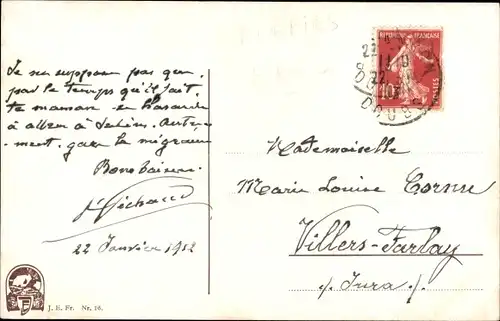 Je ne suppose pas que
par le temps qu'il fait,
ta maman se hasarde
à aller à Selin. Autre-
ment, gare la migraine
Bons baisers.
22 Janvier 1912
J. E. Fr. Nr. 16.
REPUBLIQUE FRANÇAISE
POSTES
10
22
DOUBS
Mademoiselle
Marie Louise Cornu
Villers-Farlay
s/. Jura s/.